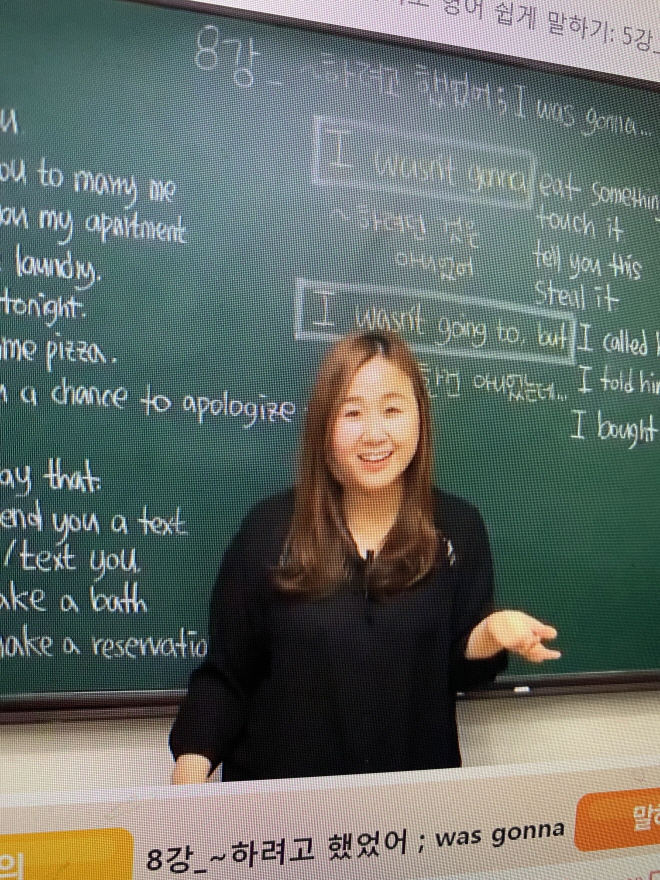 영어 쉽게 말하기: 5강_
8강_ ~하려고 했었어; I was gonna...
ou to marry me
ou my apartment
laundry.
tonight.
me pizza.
a chance to apologize
ay that.
end you a text
/ text you.
ake a bath
ake a reservatio
I wasn't gonna eat somethin
touch it
tell you this
steal it
~하려던 것은
아니었어
I wasn't going to, but I called h
I told hi
I bought
아니었는데...
의
8강_~하려고 했었어 ; was gonna
말하